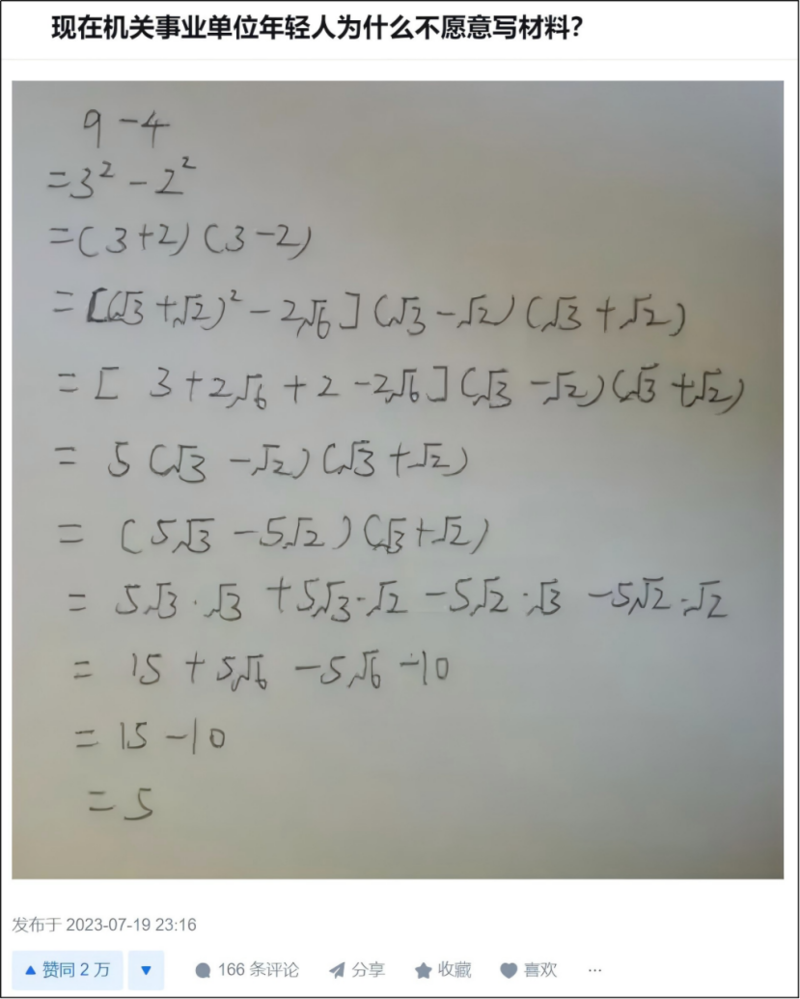 现在机关事业单位年轻人为什么不愿意写材料？
9-4
=3²-2²
=(3+2)(3-2)
=[(√3+√2)²-2√6](√3-√2)(√3+√2)
=[3+2√6+2-2√6](√3-√2)(√3+√2)
=5(√3-√2)(√3+√2)
=(5√3-5√2)(√3+√2)
=5√3·√3+5√3·√2-5√2·√3-5√2·√2
=15+5√6-5√6-10
=15-10
=5
发布于 2023-07-19 23:16
赞同 2 万 166 条评论 分享 收藏 喜欢 ...